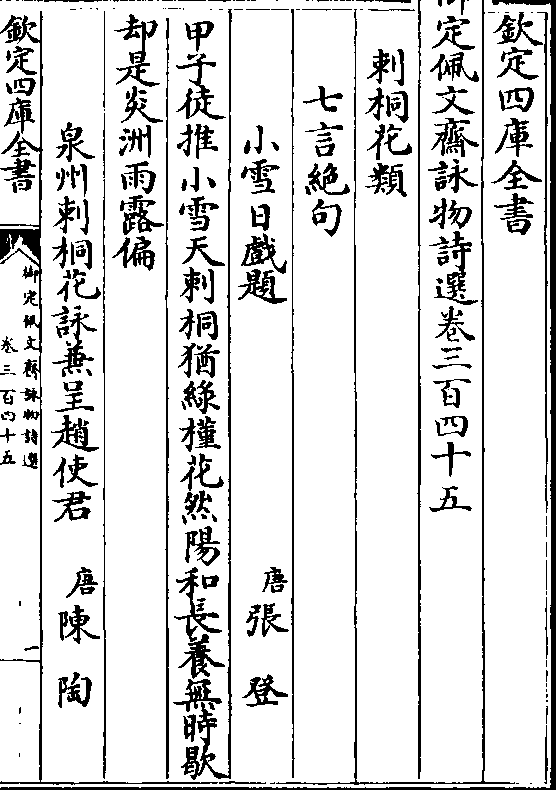 欽定四庫全書
御定佩文齋詠物詩選卷三百四十五
刺桐花類
七言絶句
小雪日戲題 唐張登
甲子徒推小雪天刺桐猶綠槿花然陽和長養無時歇
却是炎洲雨露偏
泉州刺桐花詠兼呈趙使君 唐陳陶
欽定四庫全書 御定佩文齋詠物詩選 卷三百四十五 一